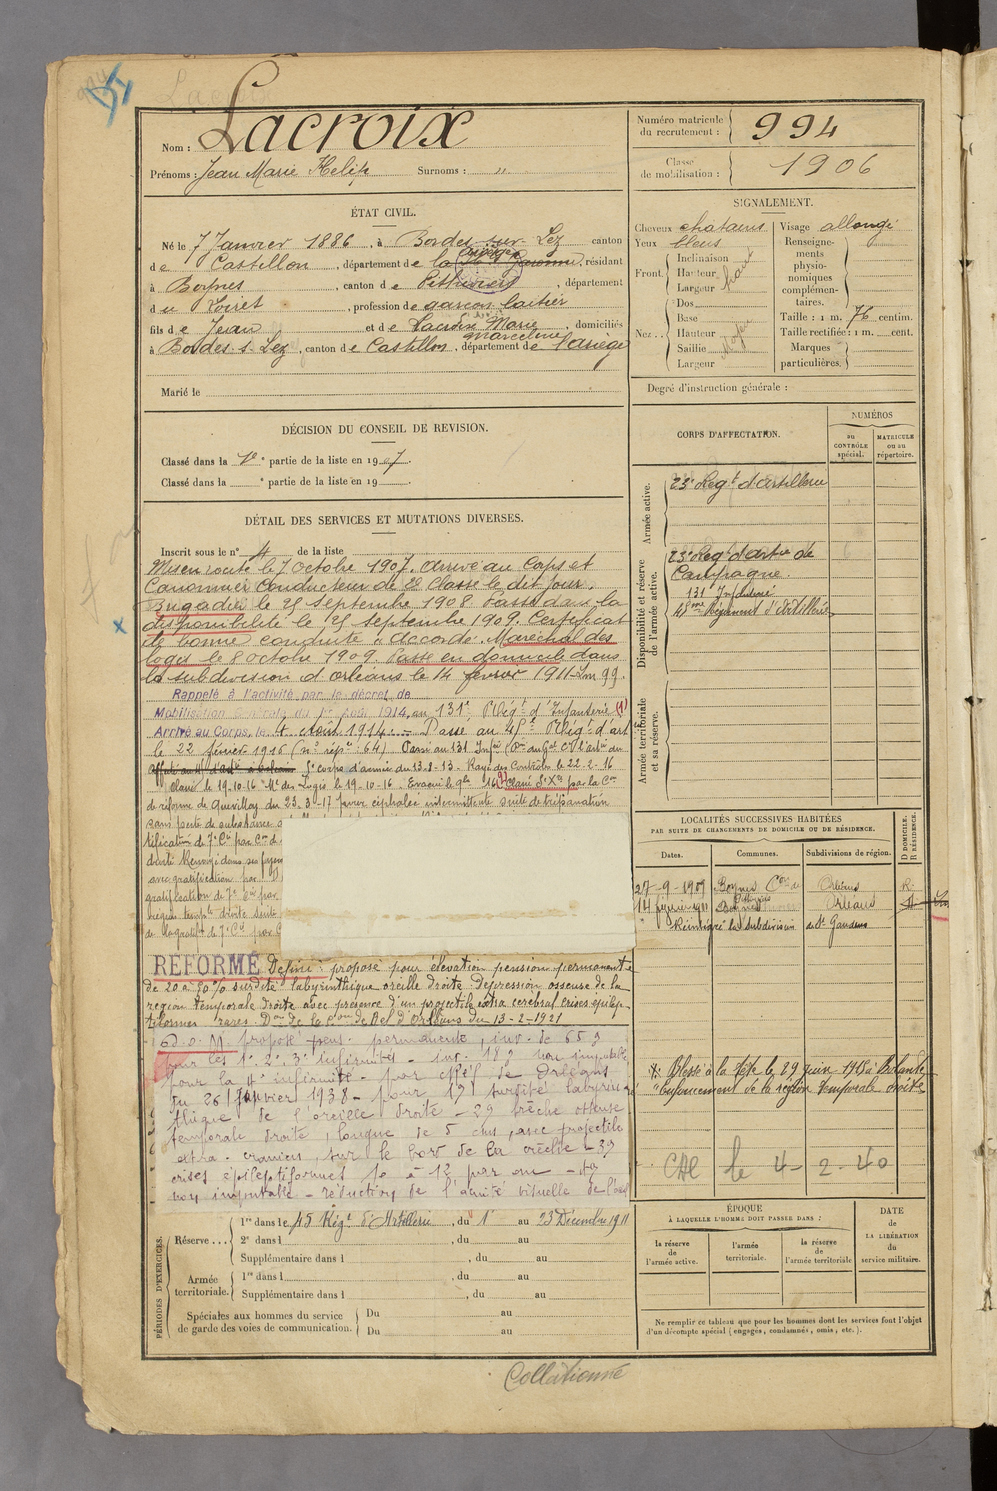 Nom : Lacroix
Prénoms : Jean Marie Surnoms : "
ÉTAT CIVIL.
Né le 7 Janvier 1886, à Bordes-sur-Lez canton
de Castillon, département de la Garonne, résidant
Ariège
à Boynes, canton de Pithiviers, département
du Loiret, profession de garçon laitier
fils de Jean et de Lacroix Marie, domiciliés
Marceline
à Bordes-s-Lez, canton de Castillon, département de l'ariège
Marié le
DÉCISION DU CONSEIL DE REVISION.
Classé dans la 1e partie de la liste en 1907.
Classé dans la e partie de la liste en 19
DÉTAIL DES SERVICES ET MUTATIONS DIVERSES.
Inscrit sous le n° 4 de la liste
Mis en route le 7 octobre 1907. arrivé au Corps et
Canonnier Conducteur de 2e Classe le dit jour.
Brigadier le 25 Septembre 1908. Passé dans la
disponibilité le 25 septembre 1909. Certificat
de bonne conduite " Accordé". Maréchal des
logis le 8 octobre 1909. Passé en domicile dans
la subdivision d'orléans le 14 février 1911
Rappelé à l'activité par le décret de
Mobilisation Générale du 1er Août 1914, au 131e Régt d'Infanterie (1)
Arrivé au Corps, le 4 Août 1914. - Passé au 45e Régt d'art
le 22 février 1916 (n° rép : 64) Passé au 131 Infie
5e corps d'armée du 13-8-13 - Rayé des Contrôles le 22-2-16
le 19-10-16 Mal des Logis le 19-10-16. Evacué le
de réforme de Quevilly du 23-3-17 pour céphalée intermittente suite de trépanation
sans perte de substance
tification de 7e Cie par Con de
droite Renvoyé dans ses foyers
avec gratification par
gratification de 7e Cie par
région tempole droite suite
de la gratifon de 7e Cie par
RÉFORMÉ Défini : proposé pour élévation pension permanente
de 20 à 50 % surdité labyrinthique oreille droite. Dépression osseuse de la
région temporale droite avec présence d'un projectile extra cérébral crises épilep-
tiformes rares. Don de la Con de Rel d'Orléans du 13-2-1921
R.D.M. proposé pens. permanente, inv. de 65 %
pour les 1e 2e 3e infirmités - inv. 15 % non imputable
pour la 4e infirmité - par d'Orléans
du 26 Janvier 1938 - pour 1°/ surdité labyrin
thique de l'oreille droite - 2°/ brèche osseuse
temporale droite, longue de 5 cms, avec projectile
extra-cranien, sur le bord de la brèche - 3°/
crises épileptiformes 10 à 12 par an - 4°/
non imputable - réduction de l'acuité visuelle de l'œil
PÉRIODES D'EXERCICES.
Réserve...
1re dans le 45 Régt d'Artillerie, du 1 au 23 Décembre 1911
2e dans l , du au
Supplémentaire dans l , du au
Armée territoriale.
1re dans l , du au
Supplémentaire dans l , du au
Spéciales aux hommes du service
de garde des voies de communication.
Du au
Du au
Collationné
Numéro matricule
du recrutement : 994
Classe
de mobilisation : 1906
SIGNALEMENT.
Cheveux chatains
Yeux bleus
Front.
Inclinaison
Hauteur haut
Largeur
Nez..
Dos
Base
Hauteur Moyen
Saillie
Largeur
Visage allongé
Renseigne-
ments
physio-
nomiques
complémen-
taires.
Taille : 1 m. 76 centim.
Taille rectifiée : 1 m. cent.
Marques
particulières.
Degré d'instruction générale :
CORPS D'AFFECTATION.
NUMÉROS
AU
CONTRÔLE
spécial.
MATRICULE
ou au
répertoire.
Armée active.
23e Regt d'artillerie
Disponibilité et réserve
de l'armée active.
23e Regt d'artie de
Campagne.
131e Infanterie
45eme Régiment d'Artillerie
Armée territoriale
et sa réserve.
LOCALITÉS SUCCESSIVES HABITÉES
PAR SUITE DE CHANGEMENTS DE DOMICILE OU DE RÉSIDENCE.
Dates. Communes. Subdivisions de région.
D DOMICILE.
R RÉSIDENCE.
27-9-1909 Boynes Con de Orléans R.
14 février 1911 Orléans
" Réintégré la Subdivision de St Gaudens
Blessé à la tête le 29 juin 1915 à Bolante
"Enfoncement de la région temporale droite
CAE le 4-2-40
ÉPOQUE
À LAQUELLE L'HOMME DOIT PASSER DANS :
la réserve
de
l'armée active.
l'armée
territoriale.
la réserve
de
l'armée territoriale
DATE
de
LA LIBÉRATION
du
service militaire.
Ne remplir ce tableau que pour les hommes dont les services font l'objet
d'un décompte spécial (engagés, condamnés, omis, etc.).